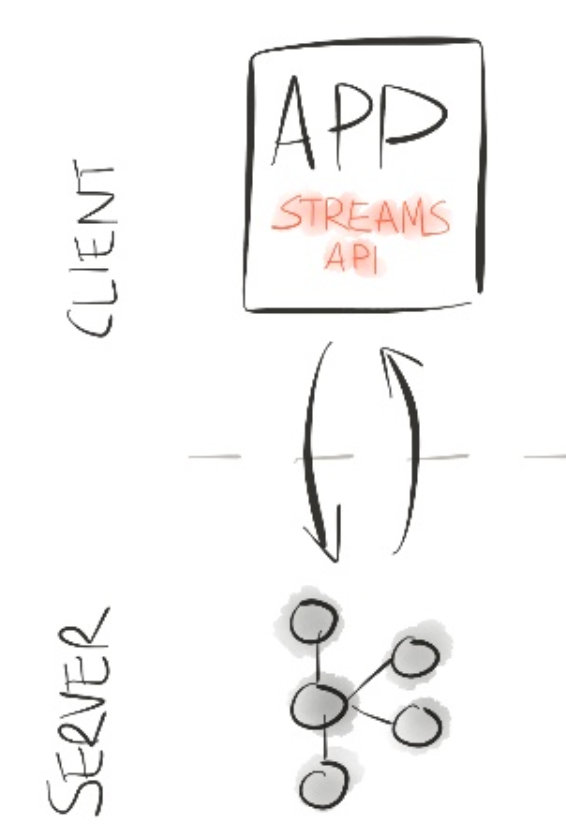 CLIENT
APP
STREAMS
API
SERVER